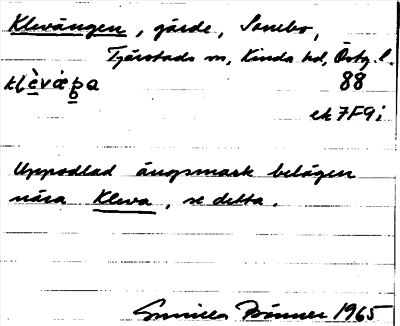 Klevängen, gärde, Sonebo,
Tjärstads sn, Kinda hd, Östg. l.
88
ek 7F9i
Uppodlad ängsmark belägen
nära Kleva, se detta.
Gunilla 1965